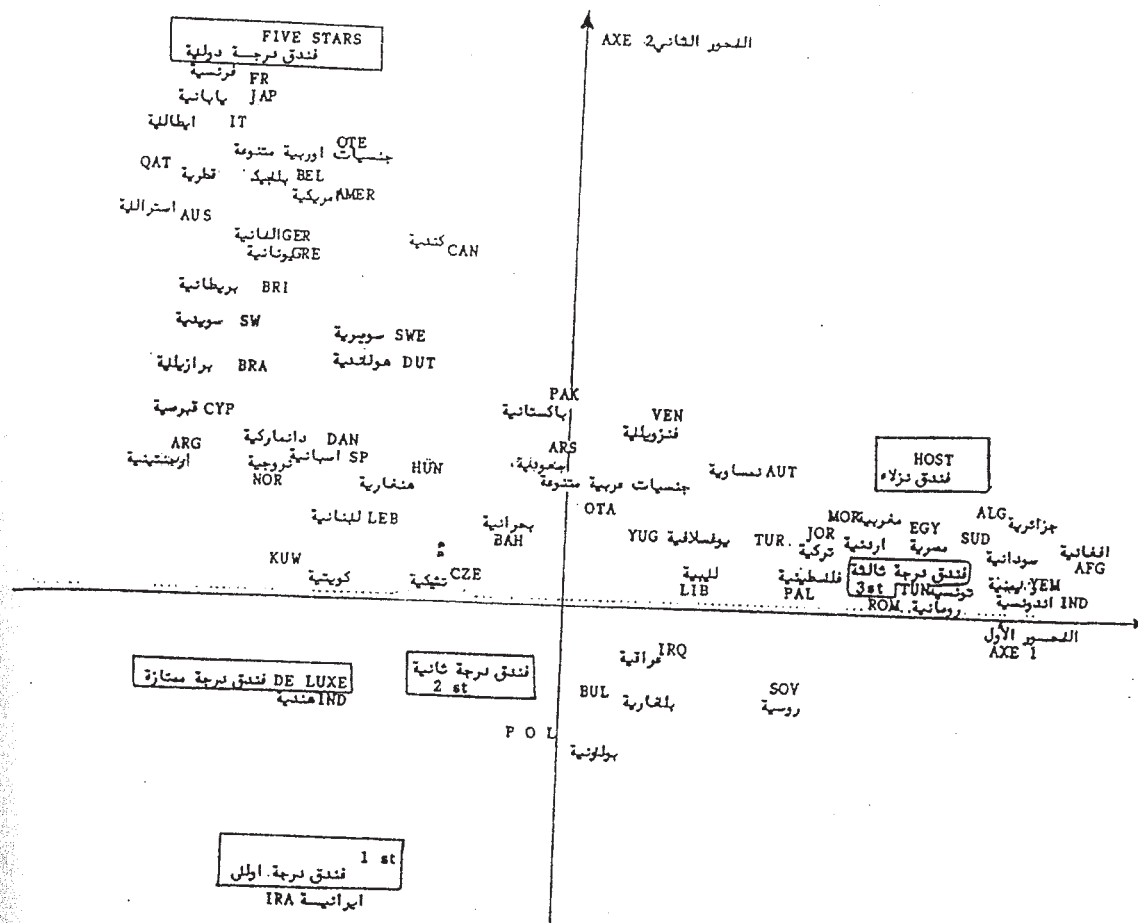 FIVE STARS
فندق درجة دولية
AXE 2 المحور الثاني
فرنسية FR
يابانية JAP
ايطالية IT
جنسيات اوربية متنوعة OTE
QAT قطرية
بلجيكية BEL
امريكية AMER
استرالية AUS
المانية GER
يونانية GRE
كندية CAN
بريطانية BRI
سويدية SW
سويسرية SWE
برازيلية BRA
هولندية DUT
قبرصية CYP
PAK
باكستانية
VEN
فنزويلية
ARG
ارجنتينية
دانماركية DAN
اسبانية SP
نروجية
NOR
HÜN
هنغارية
ARS
جنسيات عربية متنوعة
OTA
نمساوية AUT
HOST
فندق نزلاء
لبنانية LEB
بحرانية
BAH
YUG يوغسلافية
TUR.
تركية
JOR
اردنية
MOR مغربية
EGY
مصرية
SUD
سودانية
ALG
جزائرية
افغانية
AFG
KUW
كويتية
تشيكية CZE
ليبية
LIB
فلسطينية
PAL
فندق درجة ثالثة
3st
TUN تونسية
ROM رومانية
YEM
اندونسية IND
المحور الأول
AXE 1
فندق درجة ممتازة DE LUXE
هندية IND
فندق درجة ثانية
2 st
عراقية IRQ
BUL بلغارية
SOV
روسية
P O L
بولونية
1 st
فندق درجة اولى
ايرانية IRA